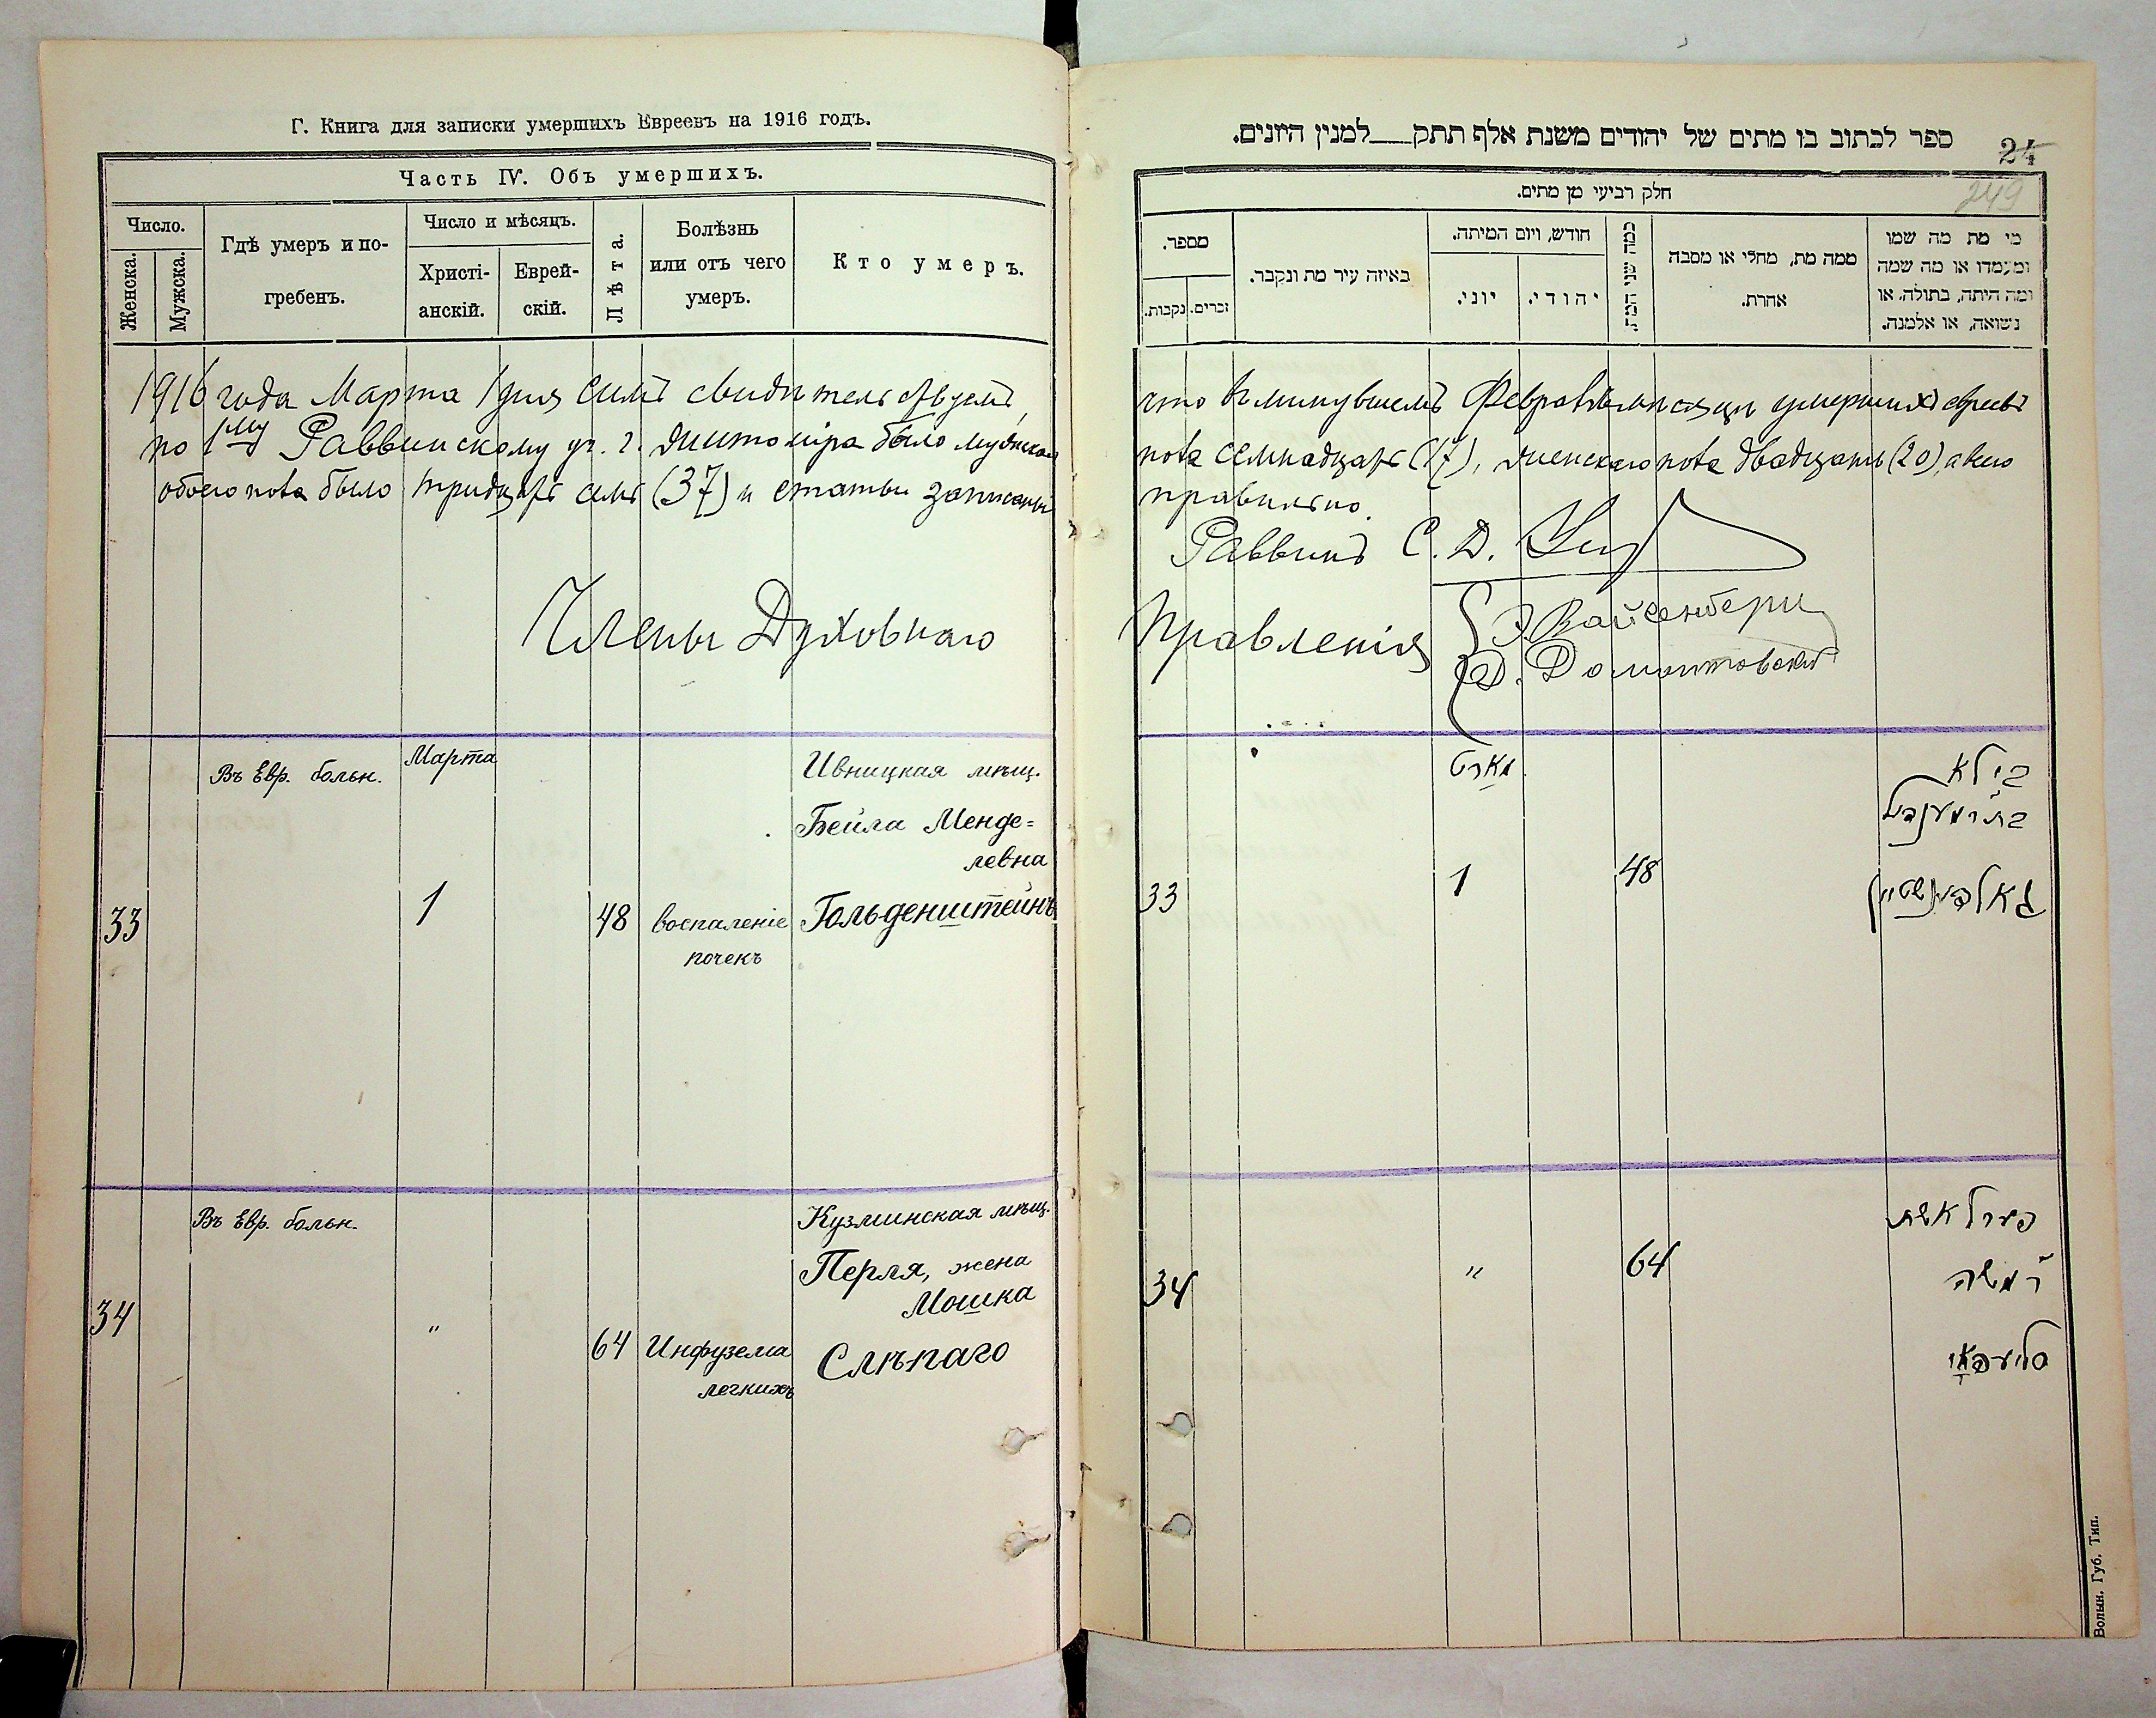 Г. Книга для записки умершихъ Евреевъ на 1916 годъ.
Часть IV. Объ умершихъ.
Число.
Женска.
Мужска.
Гдѣ умеръ и по-
гребенъ.
Число и мѣсяцъ.
Христі-
анскій.
Еврей-
скій.
Лѣта.
Болѣзнь
или отъ чего
умеръ.
Кто умеръ.
1916 года Марта 1 дня симъ свидѣтельствуемъ,
по 1му Раввинскому уч. г. Житоміра было мужскаго
обоего пола было тридцать семь (37) и статьи записаны
Члены Духовнаго
Въ Евр. больн.
Марта
Ивницкая мѣщ.
Бейла Менде=
левна
33
1
48
воспаленіе
почекъ
Гольденштейнъ
Въ Евр. больн.
Кузминская мѣщ.
Перля, жена
Мошка
34
"
64
Инфузема
легкихъ
Слѣпаго
ספר לכתוב בו מתים של יהודים משנת אלף תתק למנין היונים.
24
249
חלק רביעי מן מתים.
מספר.
נקבות.
זכרים.
באיזה עיר מת ונקבר.
חודש, ויום המיתה.
יוני.
יהודי.
כמה שני המת.
ממה מת, מחלי או מסבה
אחרת.
מי מת מה שמו
ומעמדו או מה שמה
ומה היתה, בתולה, או
נשואה, או אלמנה.
что въ минувшемъ Февралѣ мѣсяцѣ умершихъ евреевъ
пола семнадцать (17), женскаго пола двадцать (20), а всего
правильно.
Раввинъ С. Д.
Правленія
Э. Вайсенбергъ
Д. Домонтовскій
מארט
בילא
בת ר' מענדיל
33
1
48
גאלדינשטיין
פערל אשת
34
"
64
ר' משה
סליעפאי
Волын. Губ. Тип.